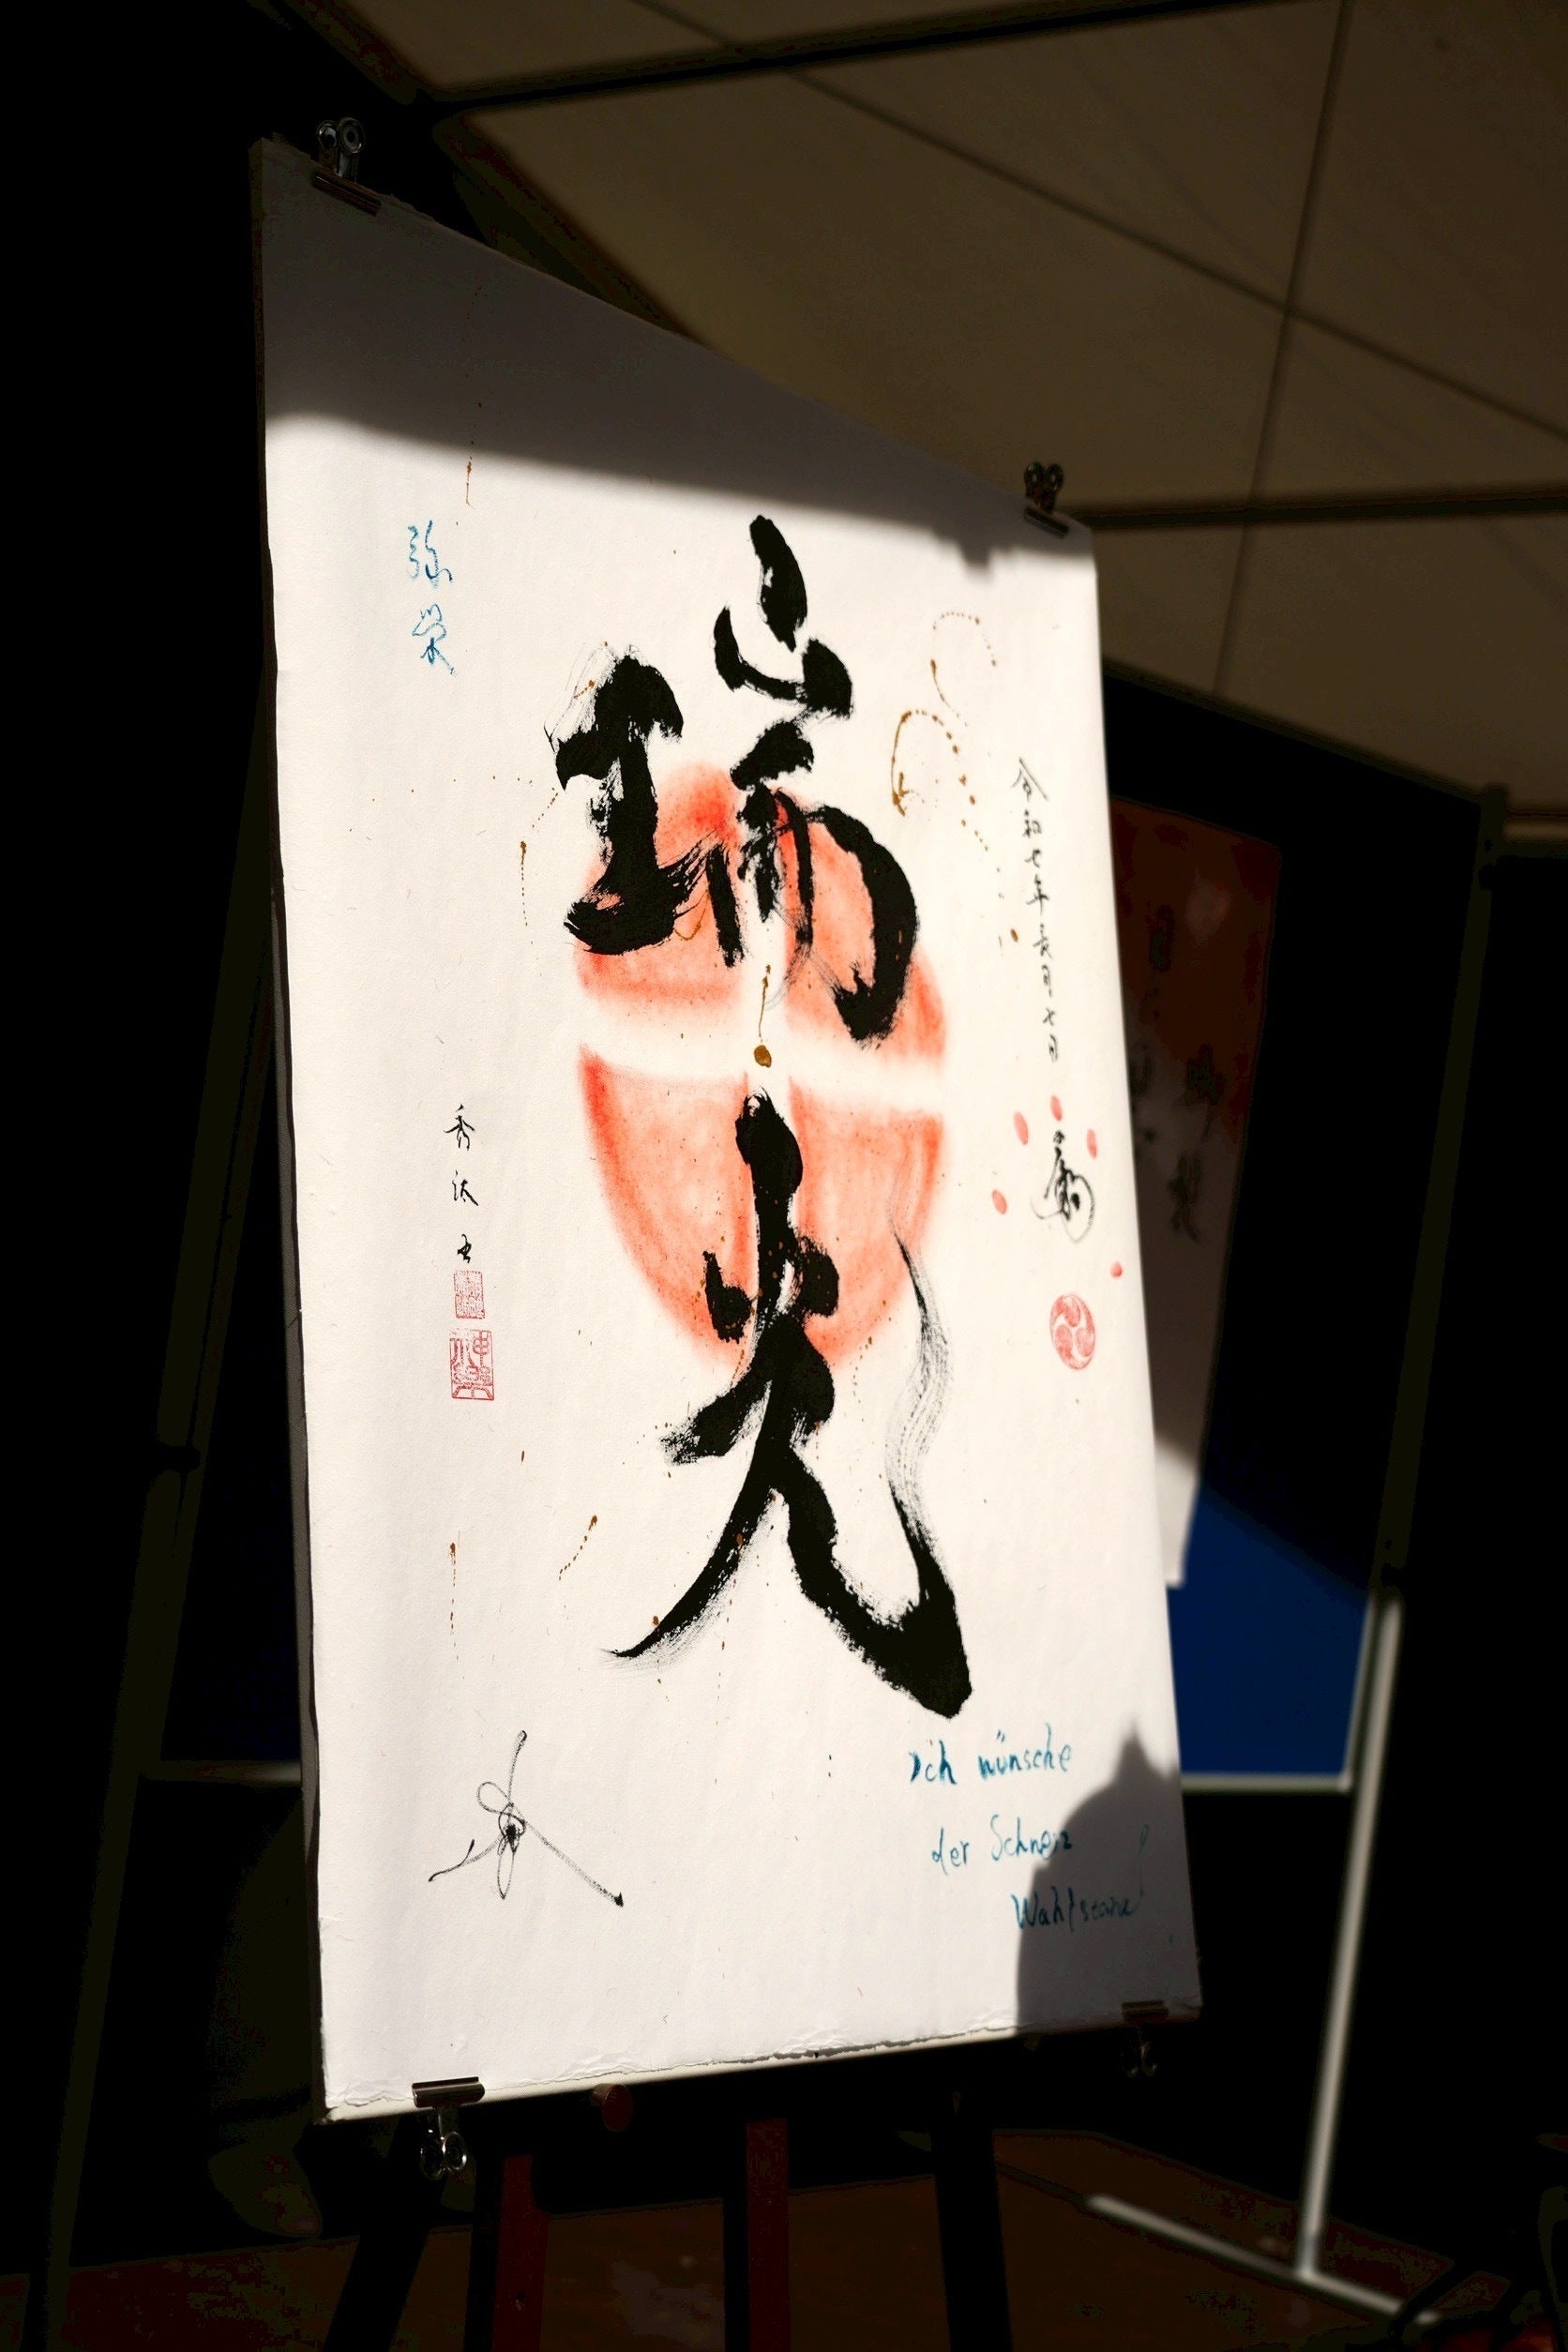 瑞光
令和七年長月七日
寿
弥栄
秀汰
神楽
Ich wünsche
der Schweiz
Wohlstand